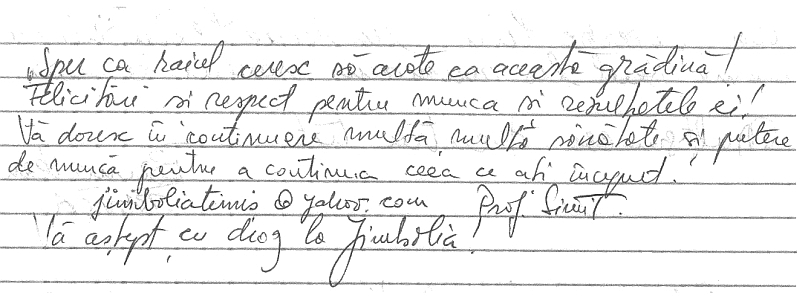 „Sper ca raiul ceresc să arate ca această grădină!
Felicitări si respect pentru munca si rezultatele ei!
Vă doresc în continuare multă, multă sănătate și putere
de muncă pentru a continua ceea ce ați început.
jimboliatimis@yahoo.com Prof.
Vă aștept cu drag la Jimbolia!